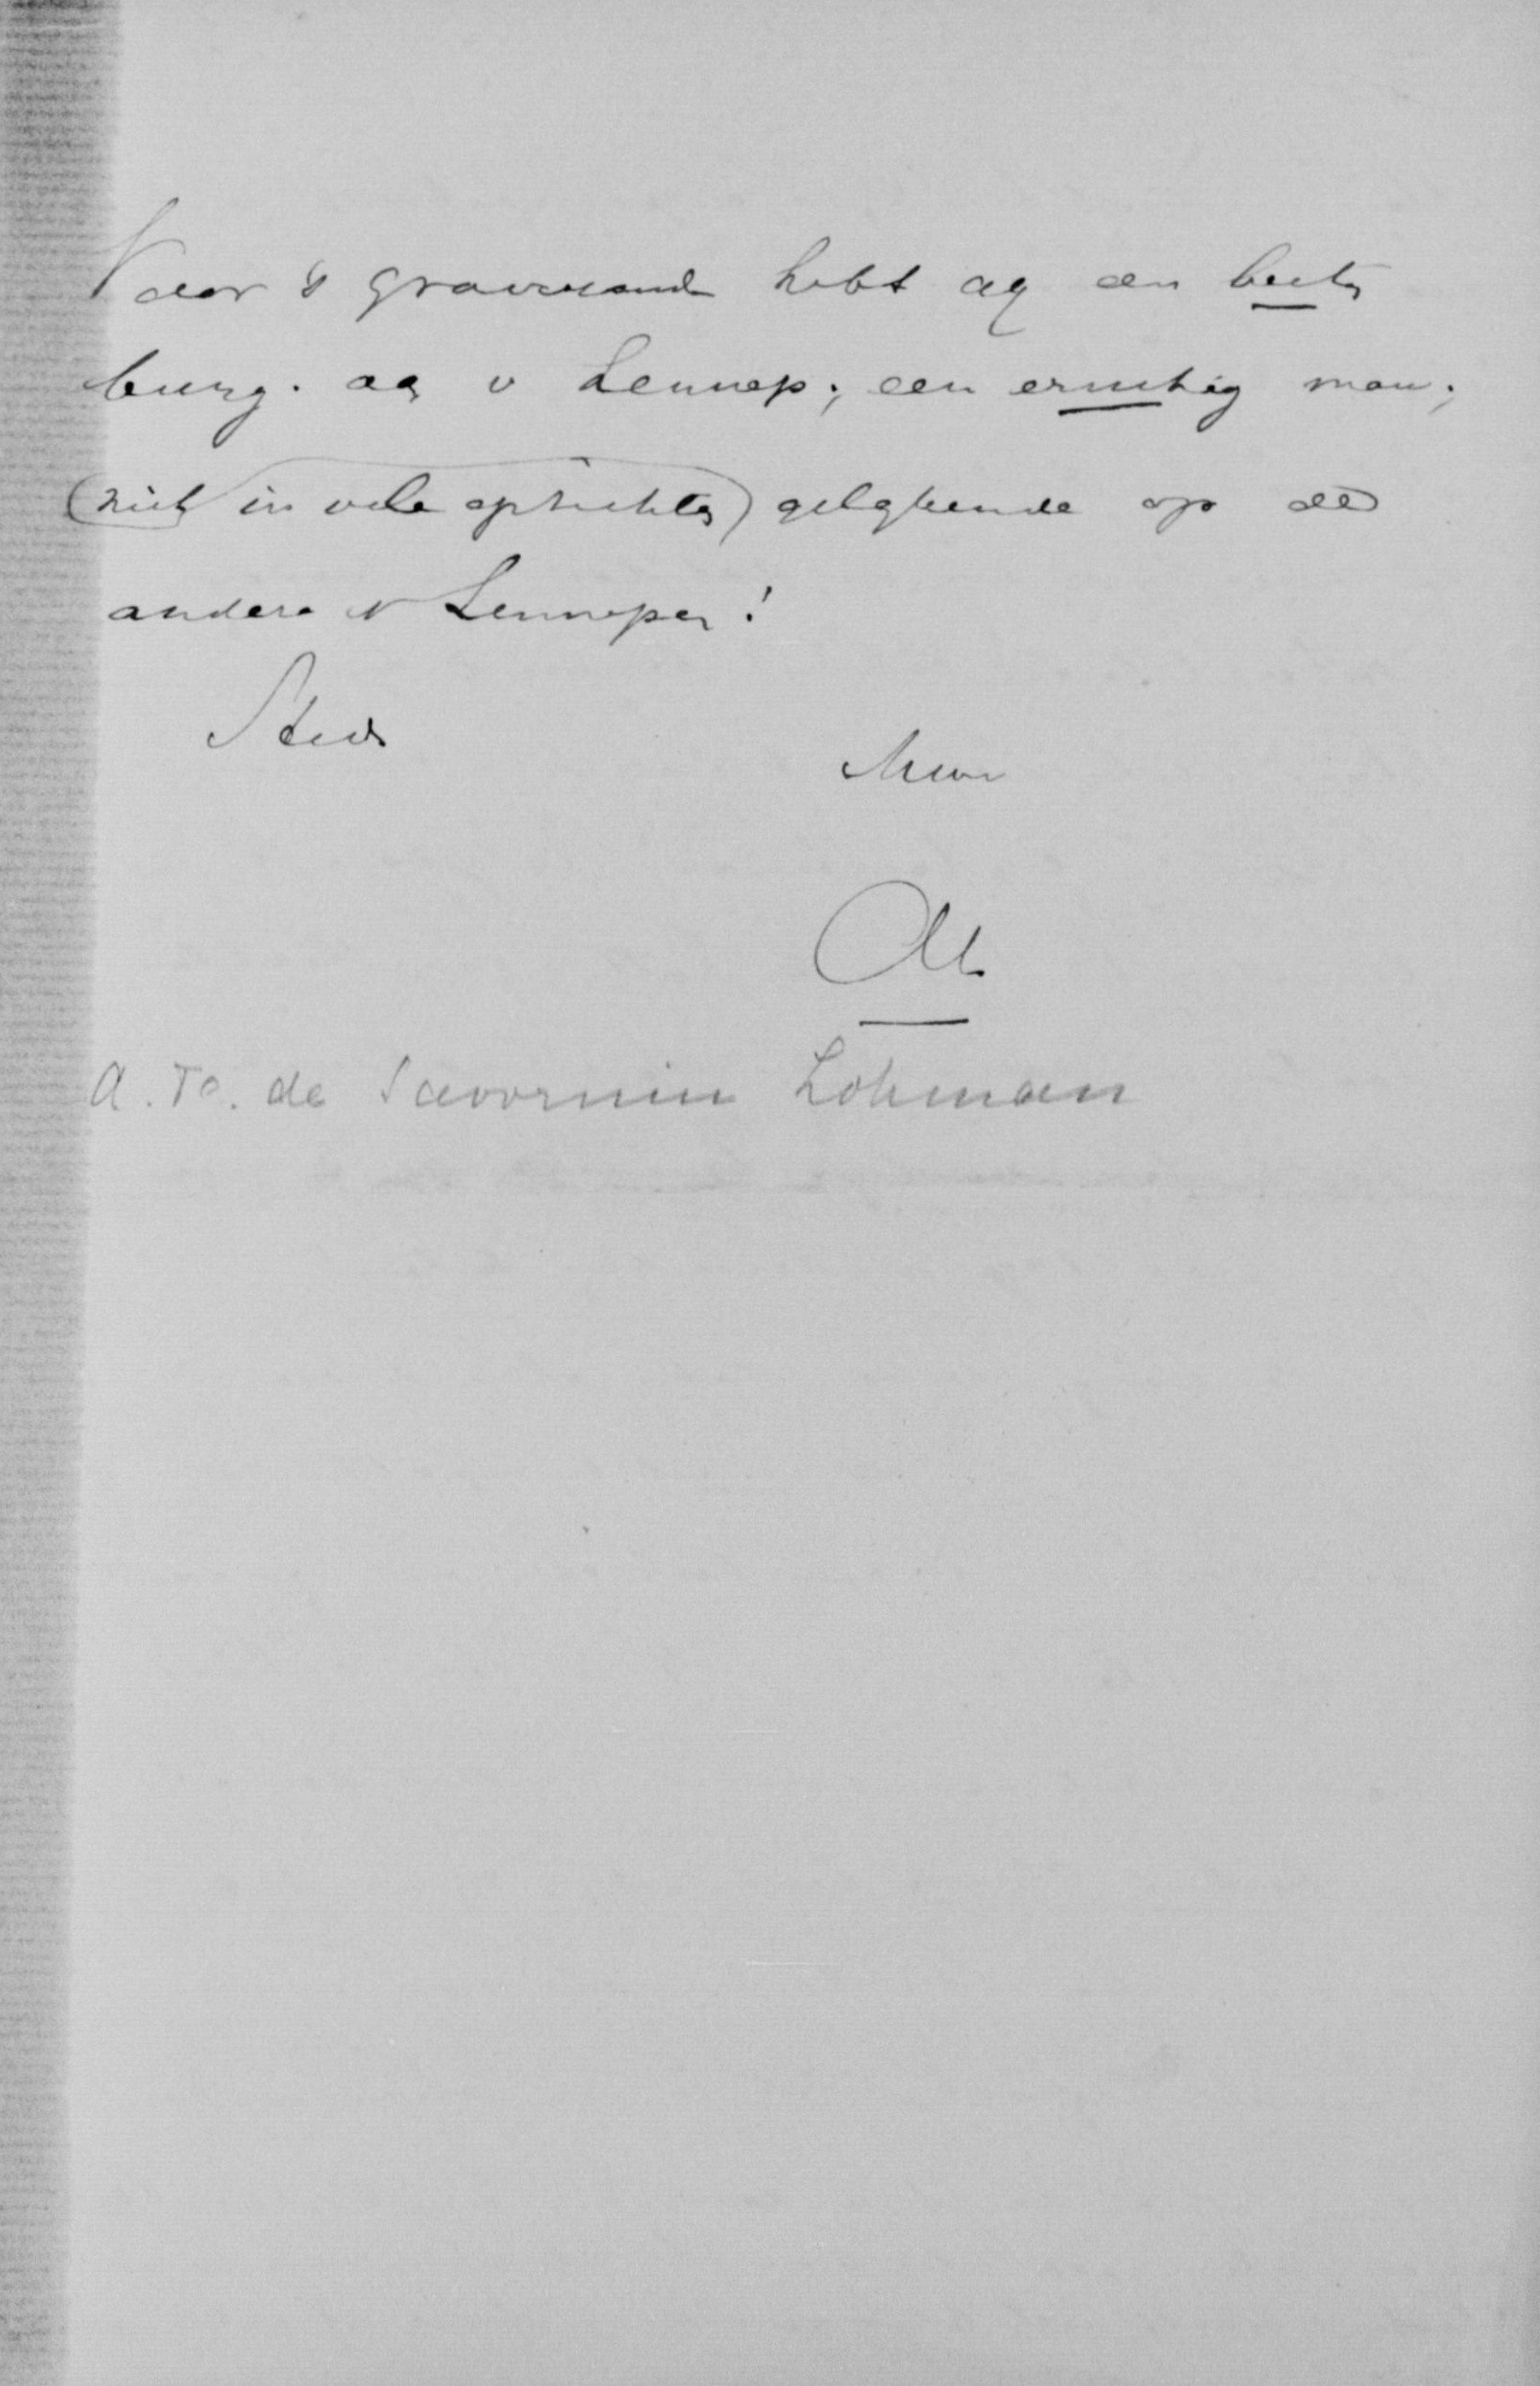 Voor 's Gravesand hebt gij een besten
burg. aan v Lennep; een ernstig man;
(niet in vele opzichten) gelijkende op de
andere v Lennepen!
Steeds
Uw
A. F. de Savornin Lohman